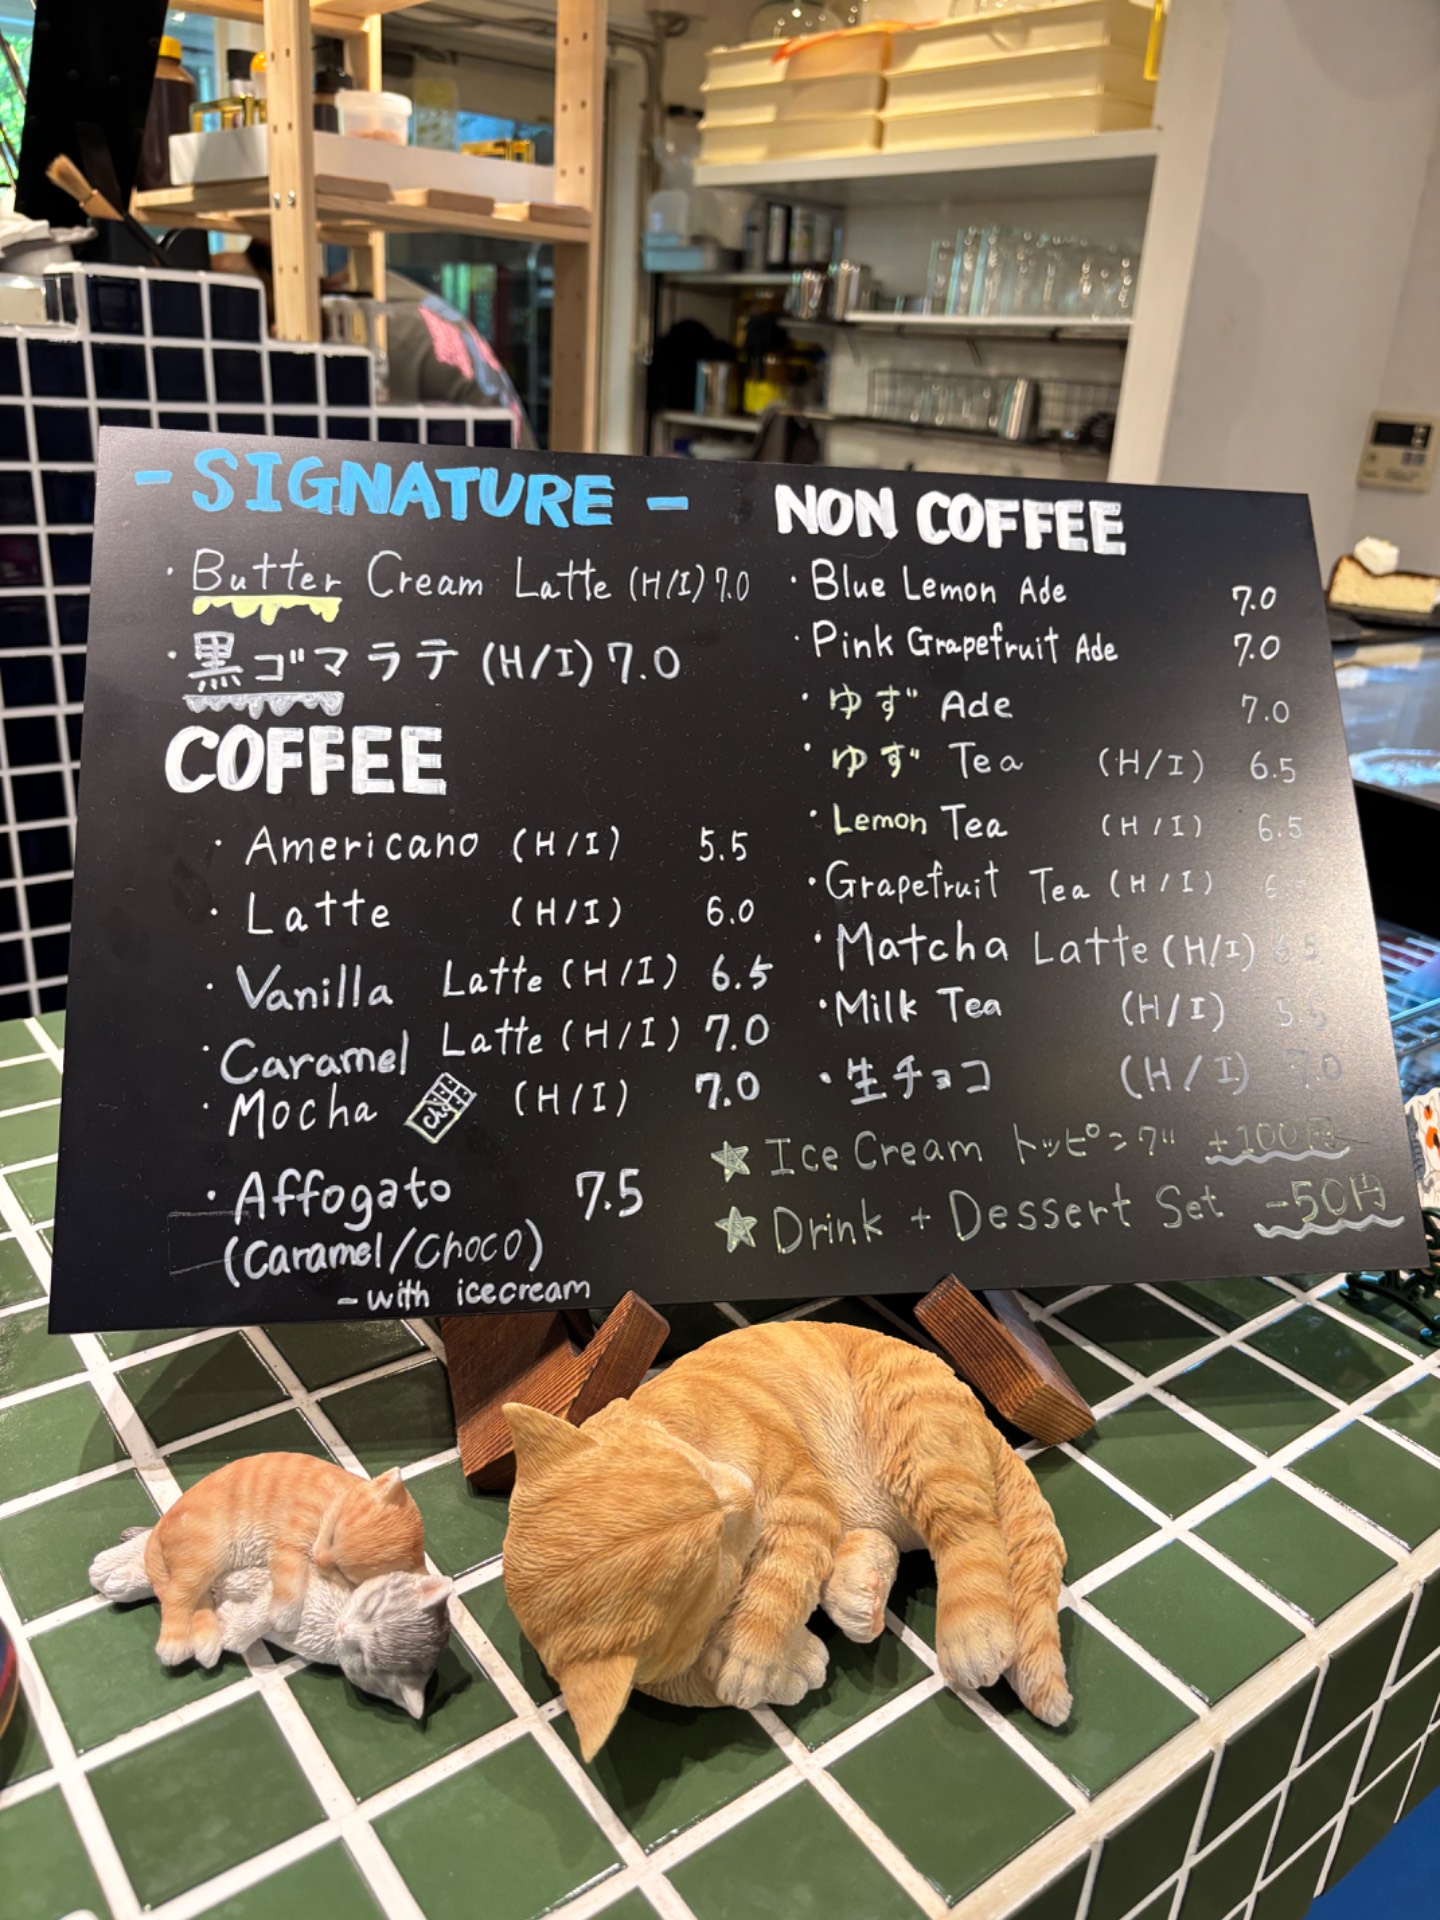 - SIGNATURE -
· Butter Cream Latte (H/I) 7.0
· 黒ゴマラテ (H/I) 7.0
COFFEE
· Americano (H/I) 5.5
· Latte (H/I) 6.0
· Vanilla Latte (H/I) 6.5
· Caramel Latte (H/I) 7.0
· Mocha (H/I) 7.0
choco
· Affogato 7.5
(Caramel/Choco)
- with icecream
NON COFFEE
· Blue Lemon Ade 7.0
· Pink Grapefruit Ade 7.0
· ゆず Ade 7.0
· ゆず Tea (H/I) 6.5
· Lemon Tea (H/I) 6.5
· Grapefruit Tea (H/I) 6.5
· Matcha Latte (H/I) 6.5
· Milk Tea (H/I) 5.5
· 生チョコ (H/I) 7.0
☆ Ice Cream トッピング +100円
☆ Drink + Dessert Set -50円